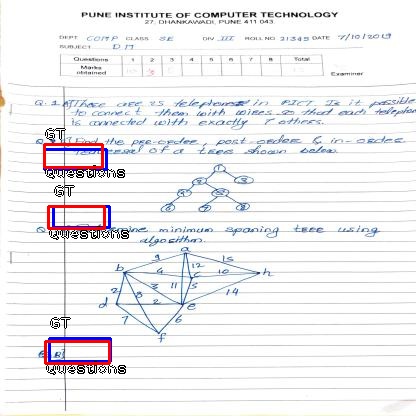 PUNE INSTITUTE OF COMPUTER TECHNOLOGY
27, DHANKAWADI, PUNE 411 043.
DEPT COMP CLASS SE DIV III ROLL NO. 21345 DATE 7/10/2019
SUBJECT DM
Questions 1 2 3 4 5 6 7 8 Total
Marks obtained
Examiner
Q.1 A] There are 15 telephones in PICT. Is it possible
to connect them with wires so that each telephone
is connected with exactly 7 others.
GT
Find the pre-order, post-order & in-order
of a tree shown below.
Questions
1
2 3
GT
Questions
minimum spaning tree using
algorithm.
a
9 12 15
b 4 c 10 h
2 3 3 11 5 14
d 2 e
7 6
f
GT
Questions